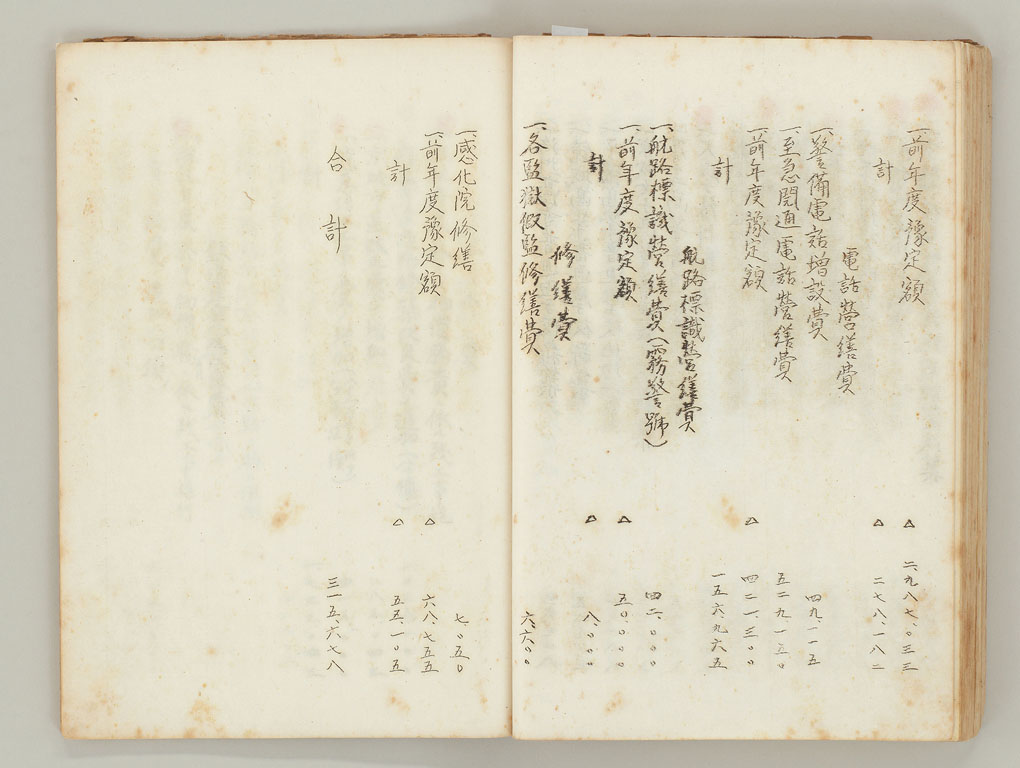 一、前年度豫定額 △二、九八七、〇三三
計 △二七八、一八二
電話營繕費
一、警備電話増設費 四九、一一五
一、至急開通電話營繕費 五二九、一五〇
一、前年度豫定額 △四二一、三〇〇
計 一五六、九六五
航路標識營繕費
一、航路標識營繕費(霧警號) 四二、〇〇〇
一、前年度豫定額 △五〇、〇〇〇
計 △八、〇〇〇
修繕費
一、各監獄假監修繕費 六、六〇〇
一、感化院修繕 七、〇五〇
一、前年度豫定額 △六八、七五五
計 △五五、一〇五
合計 三一五、六七八